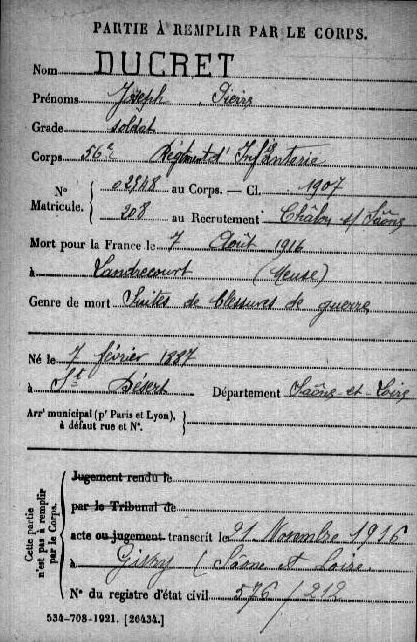 PARTIE À REMPLIR PAR LE CORPS.
Nom DUCRET
Prénoms Joseph Pierre
Grade soldat
Corps 56e Régiment d'Infanterie
N° Matricule. { 02548 au Corps. — Cl. 1907
208 au Recrutement Châlon s/ Saône
Mort pour la France le 7 Août 1916
à Landrecourt (Meuse)
Genre de mort Suites de blessures de guerre
Né le 7 février 1887
à St Désert Département Saône et Loire
Arrt municipal (pr Paris et Lyon), à défaut rue et N°. }
Cette partie n'est pas à remplir par le Corps.
Jugement rendu le
par le Tribunal de
acte ou jugement transcrit le 21 Novembre 1916
à Givry (Saône et Loire
N° du registre d'état civil 576/212
534-708-1921. [26434.]